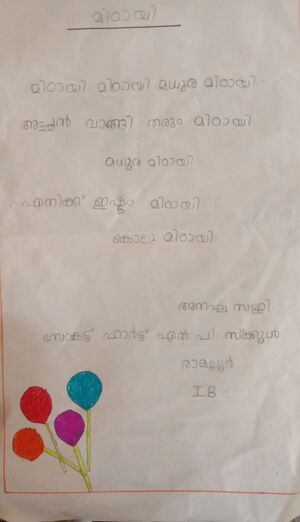 മിഠായി
മിഠായി മിഠായി മധുര മിഠായി.
അച്ഛൻ വാങ്ങി തരും മിഠായി
മധുര മിഠായി
എനിക്ക് ഇഷ്ടം മിഠായി
കോലു മിഠായി.
അനഘ സജി.
സേക്രട്ട് ഹാർട്ട് എൽ പി സ്ക്കൂൾ
രാമല്ലൂർ
I B